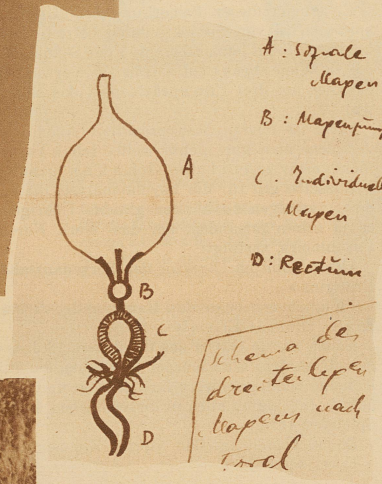 A : soziale
Magen
B : Magenpum
C . Individual
Magen
D : Rectum
A
B
C
D
Schema des
dreiteiligen
Magens nach
Forel